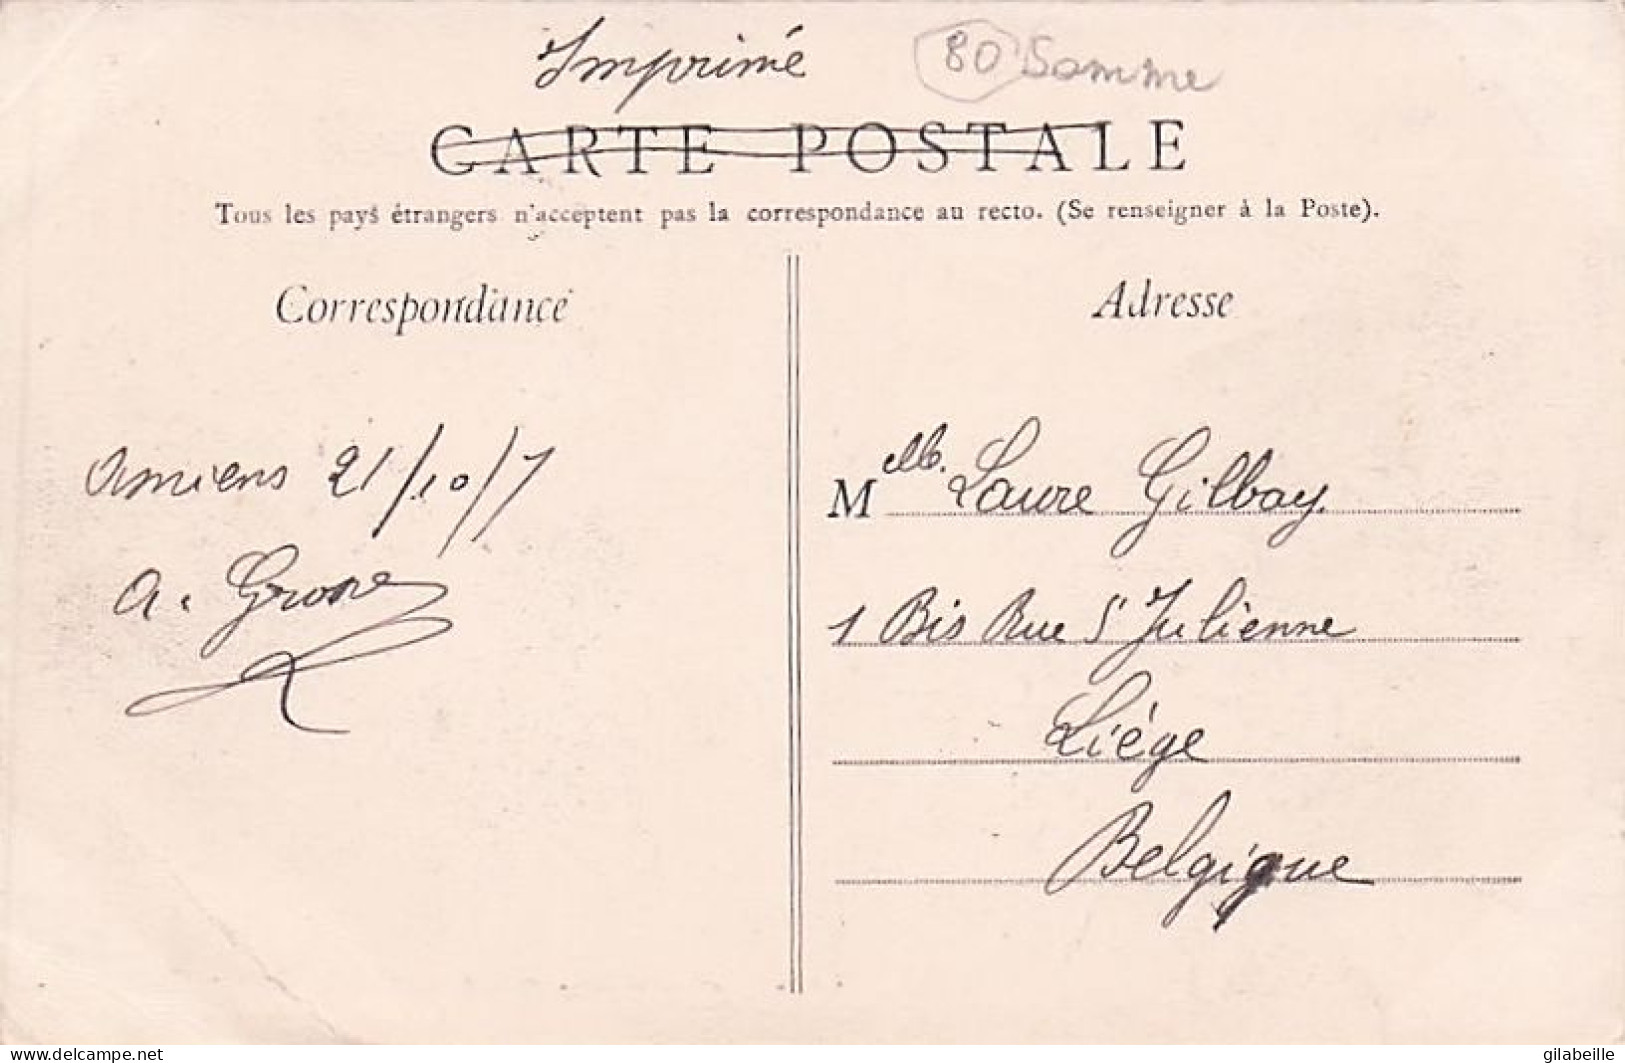 Imprimé
80 Somme
CARTE POSTALE
Tous les pays étrangers n'acceptent pas la correspondance au recto. (Se renseigner à la Poste).
Correspondance
Adresse
Amiens 21/10/7
A.
Mlle. Laure Gilbay.
1 Bis Rue St Julienne
Liège
Belgique
www.delcampe.net
gilabeille